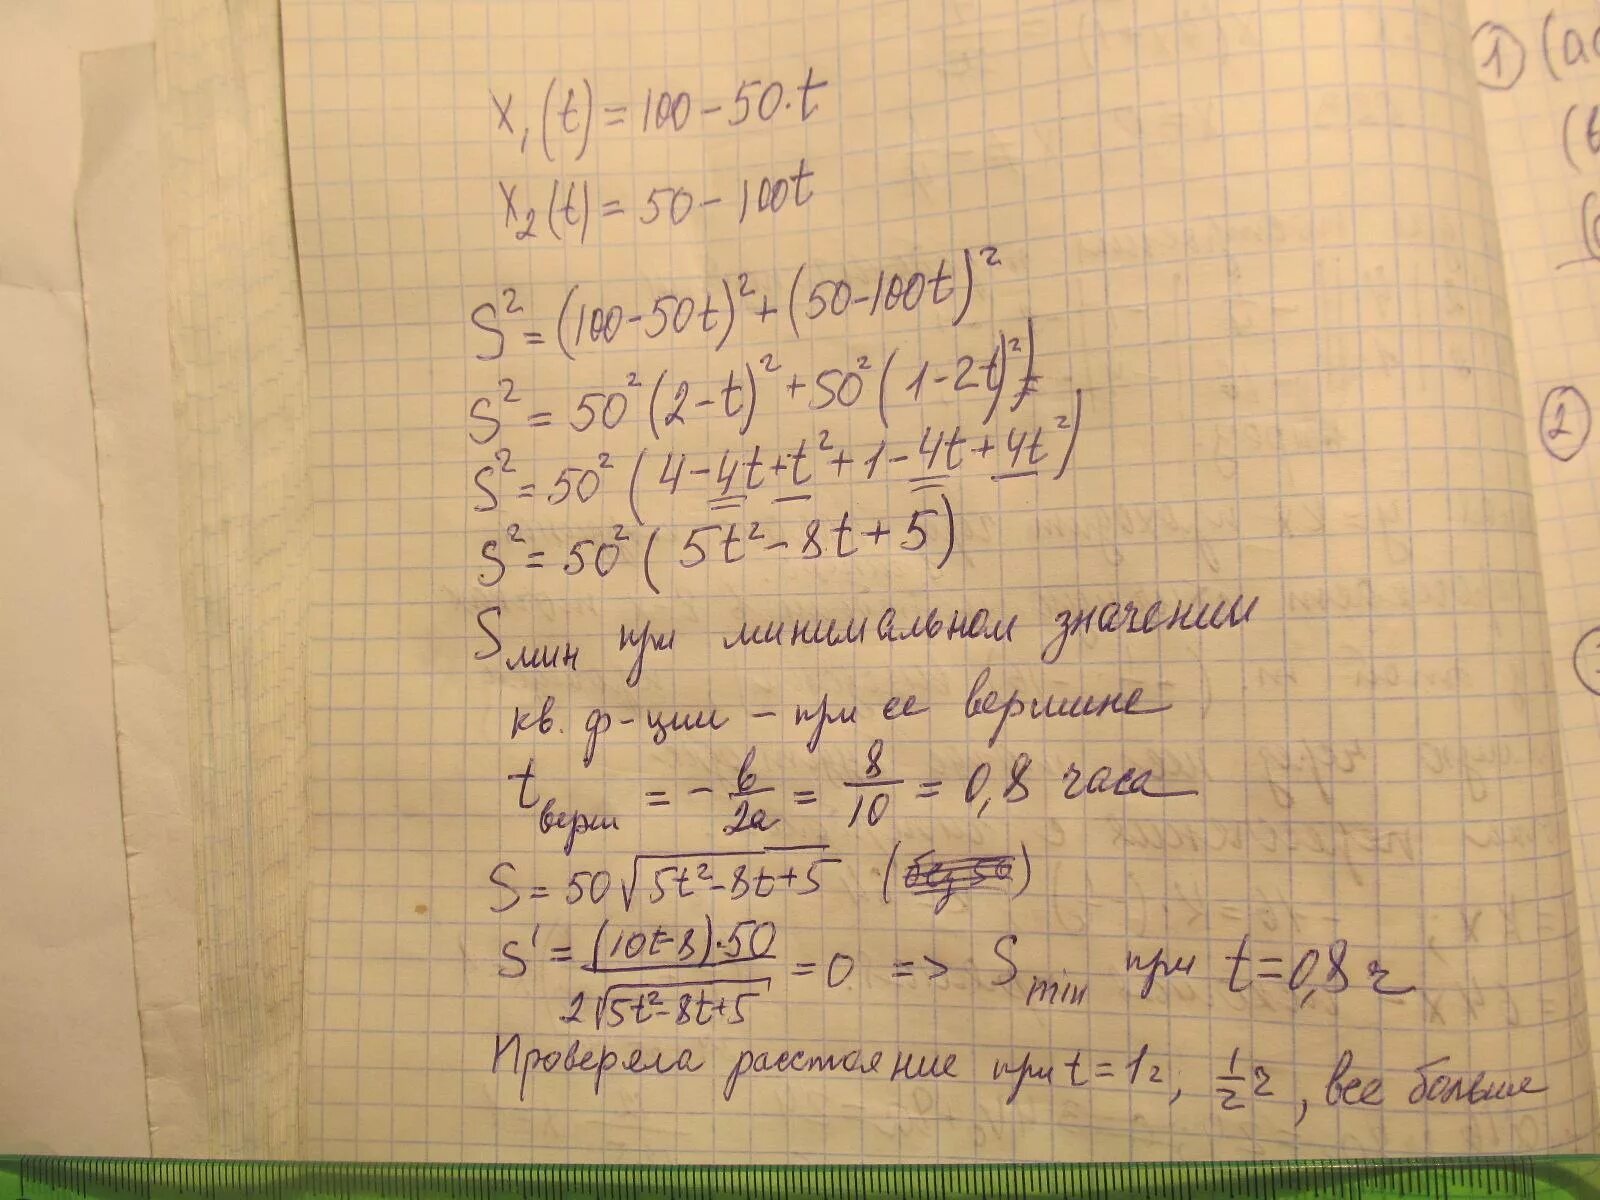 x₁(t) = 100 - 50·t
x₂(t) = 50 - 100t
S² = (100 - 50t)² + (50 - 100t)²
S² = 50²(2 - t)² + 50²(1 - 2t)²) =
S² = 50²(4 - 4t + t² + 1 - 4t + 4t²)
S² = 50²(5t² - 8t + 5)
Sмин при минимальном значении
кв. ф-ции - при ее вершине
tверш = -b/2a = 8/10 = 0,8 часа
S = 50√(5t² - 8t + 5) (без 50)
S' = (10t - 8)·50 / 2√(5t² - 8t + 5) = 0 => Smin при t = 0,8 ч
Проверяла расстояние при t = 1ч, 1/2 ч, все больше
1 (
(
(
2